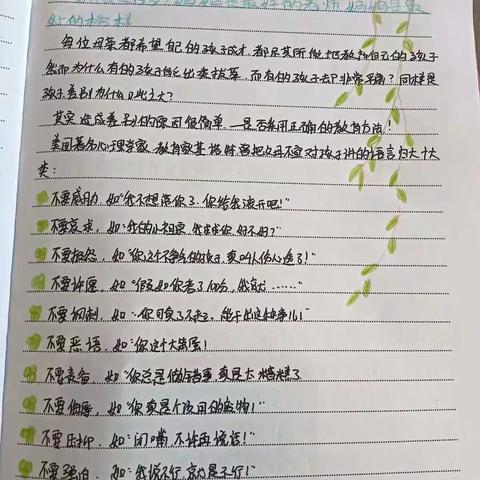 妈妈是最好的老师 妈妈是最
好的榜样
每位母亲都希望自己的孩子成才,都尽其所能地教养自己的孩子
然而为什么有的孩子能出类拔萃,而有的孩子却非常平庸?同样是
孩子差别为什么如此之大?
其实造成差别的原因很简单——是否采用正确的教育方法!
美国著名心理学家、教育家基诺特博士曾把父母不要对孩子讲的语言归为十大
类:
不要威吓,如“我不想管你了,你给我滚开吧!”
不要哀求,如“我的小祖宗,我求求你,好不好?”
不要抱怨,如“你这个不争气的孩子,真叫人伤心透了!”
不要许愿,如“假如你考了100分,我就……”
不要讽刺,如“你可真了不起,能干出这种事儿!
不要恶语,如“你这个大笨蛋!
不要责备,如“你总是做错事,真是太糟糕了
不要侮辱,如“你真是个没用的废物!”
不要压抑,如“闭嘴,不许再说话!”
不要强迫,如“我说不行,就是不行!”